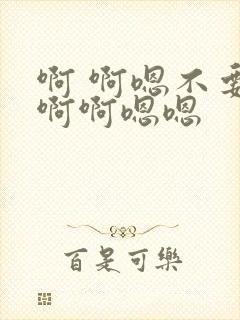 啊 啊嗯不要
啊啊嗯嗯
百是可樂